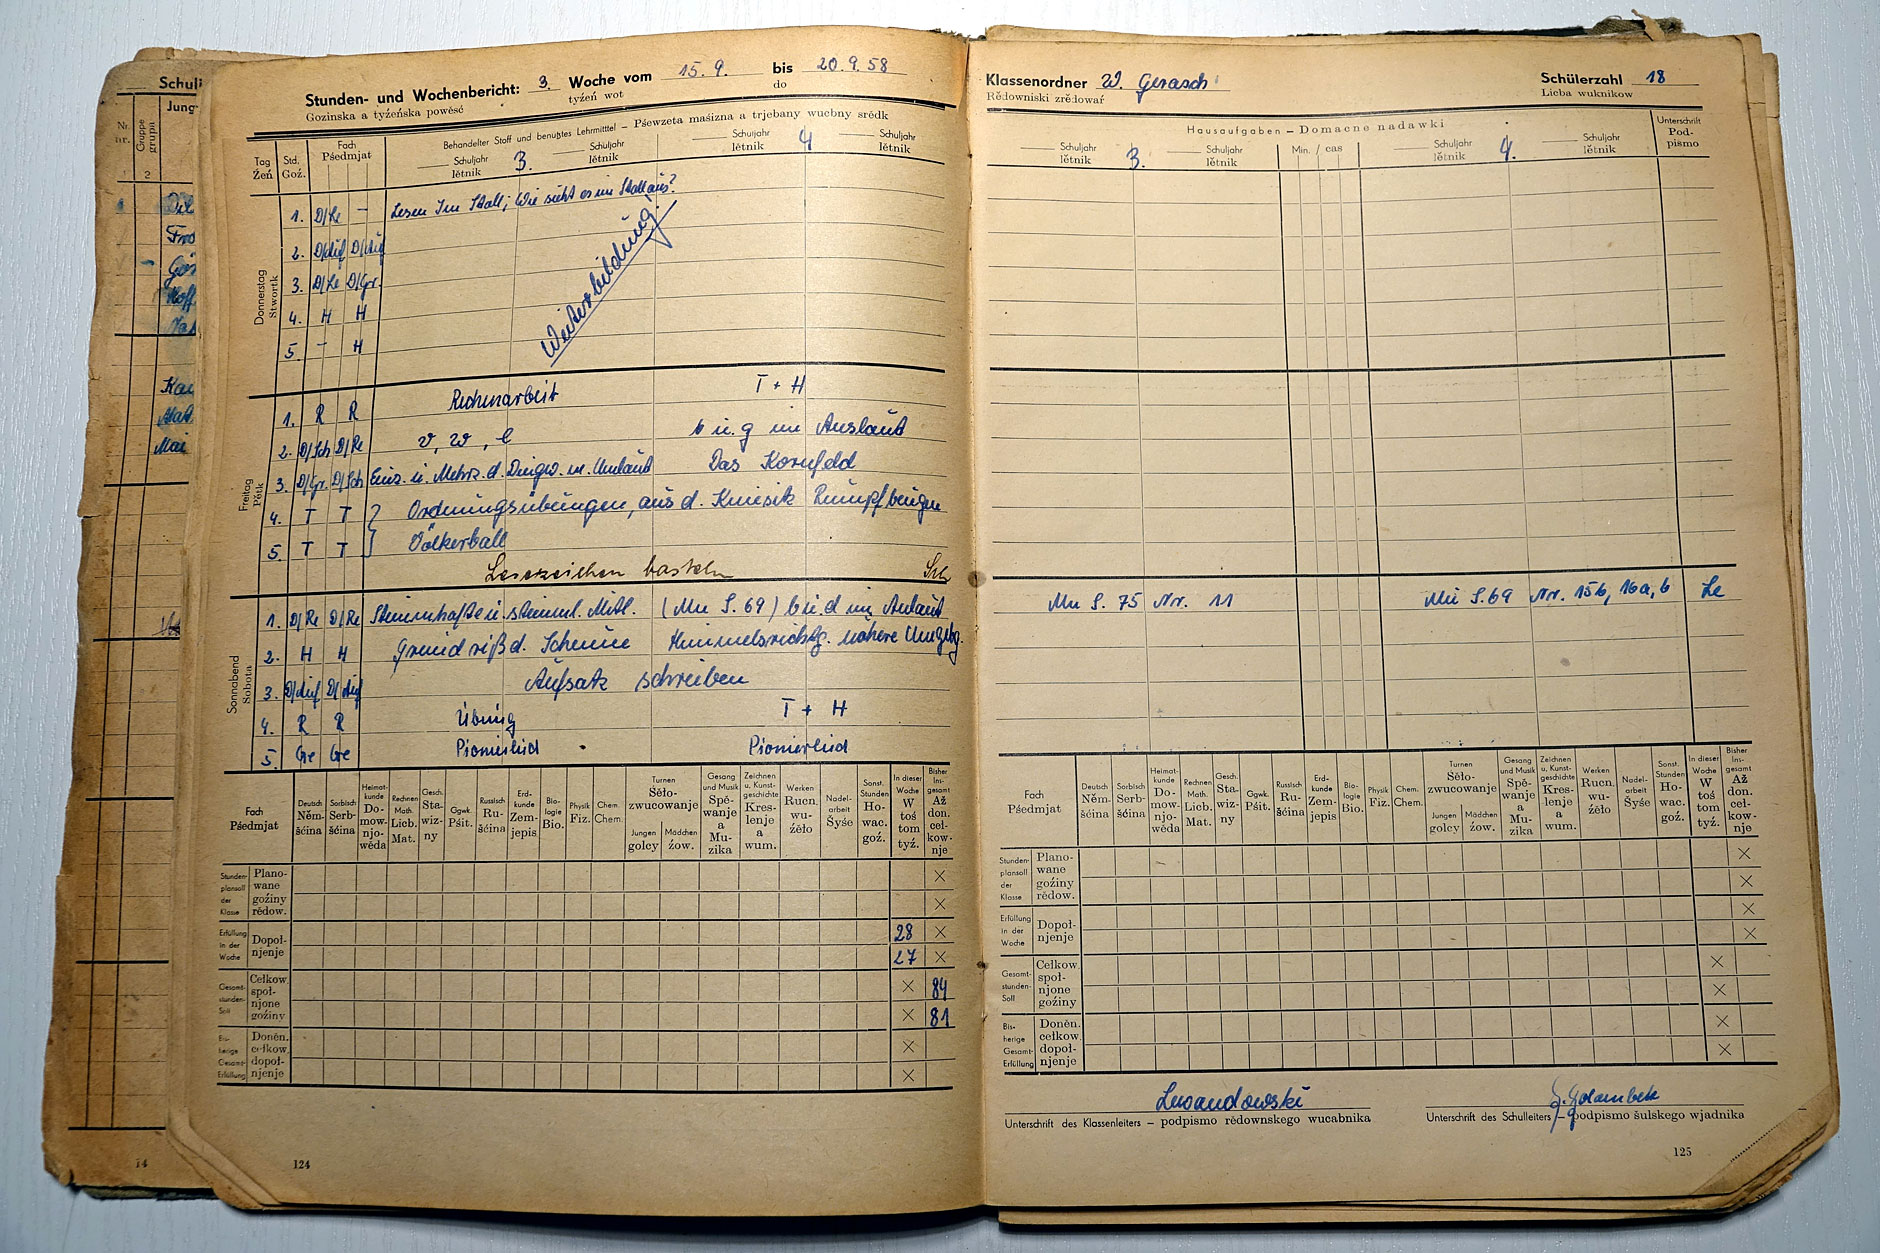 Schuli
Jung-
Nr.
nr.
Gruppe
grupa
2
Mai
14
Stunden- und Wochenbericht: 3. Woche vom 15. 9. bis 20. 9. 58
Gozinska a tyźeńska powěsć tyźeń wot do
Tag
Źeń
Std.
Goź.
Fach
Pśedmjat
Behandelter Stoff und benutztes Lehrmittel – Pśewzeta maśizna a trjebany wucbny srědk
Schuljahr 3. Schuljahr Schuljahr 4 Schuljahr
lětnik lětnik lětnik lětnik
Donnerstag
Stwortk
1. D/Le – Lesen Im Stall; Wie sieht es im Stall aus?
2. D/Auf D/Auf
3. D/Le D/Gr.
4. H H
5. – H
Weiterbildung!
Freitag
Pětk
1. R R Rechenarbeit T + H
2. D/Sch D/Re v, W, C b u. g im Auslaut
3. D/Gr. D/Sch Einz. u. Mehrz. d. Dingw. m. Umlaut Das Kornfeld
4. T T Ordnungsübungen, aus d. Kniesitz Rumpfbeugen
5. T T Völkerball
Lesezeichen basteln Sch
Sonnabend
Sobota
1. D/Re D/Re Stimmhafte u. stimml. Mitl. (Mu S. 69) b u. d im Auslaut
2. H H Grundriß d. Scheune Himmelsrichtg. nähere Umgebg.
3. D/Auf D/Auf Aufsatz schreiben
4. R R Übung T + H
5. Ge Ge Pionierlied Pionierlied
Fach
Pśedmjat
Deutsch
Něm-
šćina
Sorbisch
Serb-
šćina
Heimat-
kunde
Do-
mow-
njo-
wěda
Rechnen
Math.
Licb.
Mat.
Gesch.
Sta-
wiz-
ny
Ggwk.
Pśit.
Russisch
Ru-
šćina
Erd-
kunde
Zem-
jepis
Bio-
logie
Bio.
Physik
Fiz.
Chem.
Chem.
Turnen
Śěło-
zwucowanje
Jungen
golcy
Mädchen
źow.
Gesang
und Musik
Spě-
wanje
a
Mu-
zika
Zeichnen
u. Kunst-
geschichte
Kres-
lenje
a
wum.
Werken
Rucn.
wu-
źěło
Nadel-
arbeit
Šyśe
Sonst.
Stunden
Ho-
wac.
goź.
In dieser
Woche
W
toś
tom
tyź.
Bisher
ins-
gesamt
Až
don.
ceł-
kow-
nje
Stunden-
plansoll
der
Klasse
Plano-
wane
goźiny
rědow.
×
×
Erfüllung
in der
Woche
Dopoł-
njenje
28 ×
27 ×
Gesamt-
stunden-
Soll
Cełkow.
społ-
njone
goźiny
× 84
× 81
Bis-
herige
Gesamt-
Erfüllung
Doněn.
cełkow.
dopoł-
njenje
×
×
124
Klassenordner W. Gerasch Schülerzahl 18
Rědowniski zrědowaŕ Licba wuknikow
Hausaufgaben – Domacne nadawki
Unterschrift
Pod-
pismo
Schuljahr 3. Schuljahr Min. / cas Schuljahr 4. Schuljahr
lětnik lětnik lětnik lětnik
Mu S. 75 Nr. 11 Mu S. 69 Nr. 15b, 16a, b Le
Fach
Pśedmjat
Deutsch
Něm-
šćina
Sorbisch
Serb-
šćina
Heimat-
kunde
Do-
mow-
njo-
wěda
Rechnen
Math.
Licb.
Mat.
Gesch.
Sta-
wiz-
ny
Ggwk.
Pśit.
Russisch
Ru-
šćina
Erd-
kunde
Zem-
jepis
Bio-
logie
Bio.
Physik
Fiz.
Chem.
Chem.
Turnen
Śěło-
zwucowanje
Jungen
golcy
Mädchen
źow.
Gesang
und Musik
Spě-
wanje
a
Mu-
zika
Zeichnen
u. Kunst-
geschichte
Kres-
lenje
a
wum.
Werken
Rucn.
wu-
źěło
Nadel-
arbeit
Šyśe
Sonst.
Stunden
Ho-
wac.
goź.
In dieser
Woche
W
toś
tom
tyź.
Bisher
ins-
gesamt
Až
don.
ceł-
kow-
nje
Stunden-
plansoll
der
Klasse
Plano-
wane
goźiny
rědow.
×
×
Erfüllung
in der
Woche
Dopoł-
njenje
×
×
Gesamt-
stunden-
Soll
Cełkow.
społ-
njone
goźiny
×
×
Bis-
herige
Gesamt-
Erfüllung
Doněn.
cełkow.
dopoł-
njenje
×
×
Lewandowski
Golambek
Unterschrift des Klassenleiters – podpismo rědownskego wucabnika
Unterschrift des Schulleiters – podpismo šulskego wjadnika
125